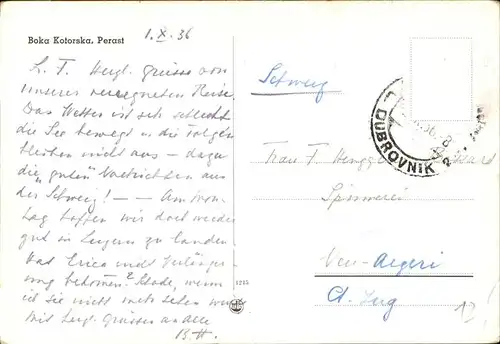 Boka Kotorska, Perast
1. X. 36
L. F. Herzl. Grüsse von
unserer verregneten Reise.
Das Wetter ist sehr schlecht
die See bewegt u. die Folgen
bleiben nicht aus – dazu
die "guten" Nachrichten aus
der Schweiz! – Am Mon-
tag hoffen wir doch wieder
gut in Luzern zu landen
Hat Erica noch Verlänger-
ung bekommen? Schade, wenn
ich sie nicht mehr sehen
Mit herzl. Grüssen an alle
B. H.
Schweiz
DUBROVNIK 2
Frau F.
Spinnerei
Neu-Aegeri
Ct. Zug
1245